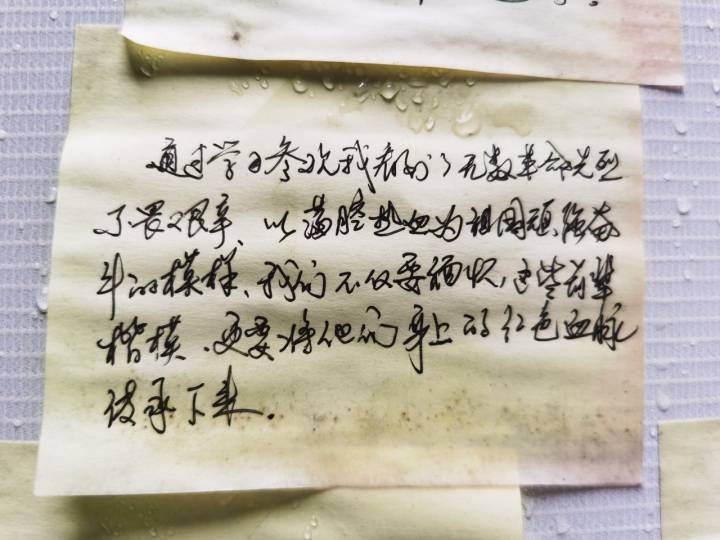 通过学习参观我看到了无数革命先烈
不畏艰辛、以满腔热血为祖国顽强奋
斗的模样、我们不仅要缅怀,这些前辈
楷模、更要将他们身上的红色血脉
传承下来.